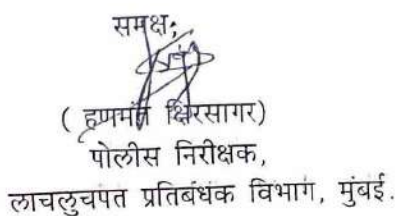 समक्ष;
( हणमंत क्षिरसागर)
पोलीस निरीक्षक,
लाचलुचपत प्रतिबंधक विभाग, मुंबई.